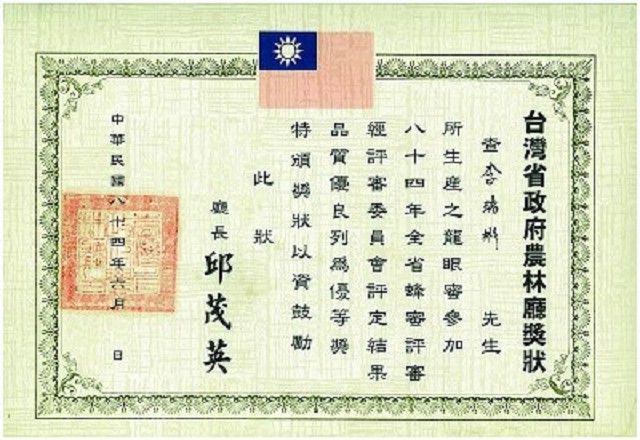 台灣省政府農林廳獎狀
查李 先生
所生產之龍眼蜜參加
八十四年全省蜂蜜評審
經評審委員會評定結果
品質優良列為優等獎
特頒獎狀以資鼓勵
此狀
廳長 邱茂英
中華民國八十四年六月 日